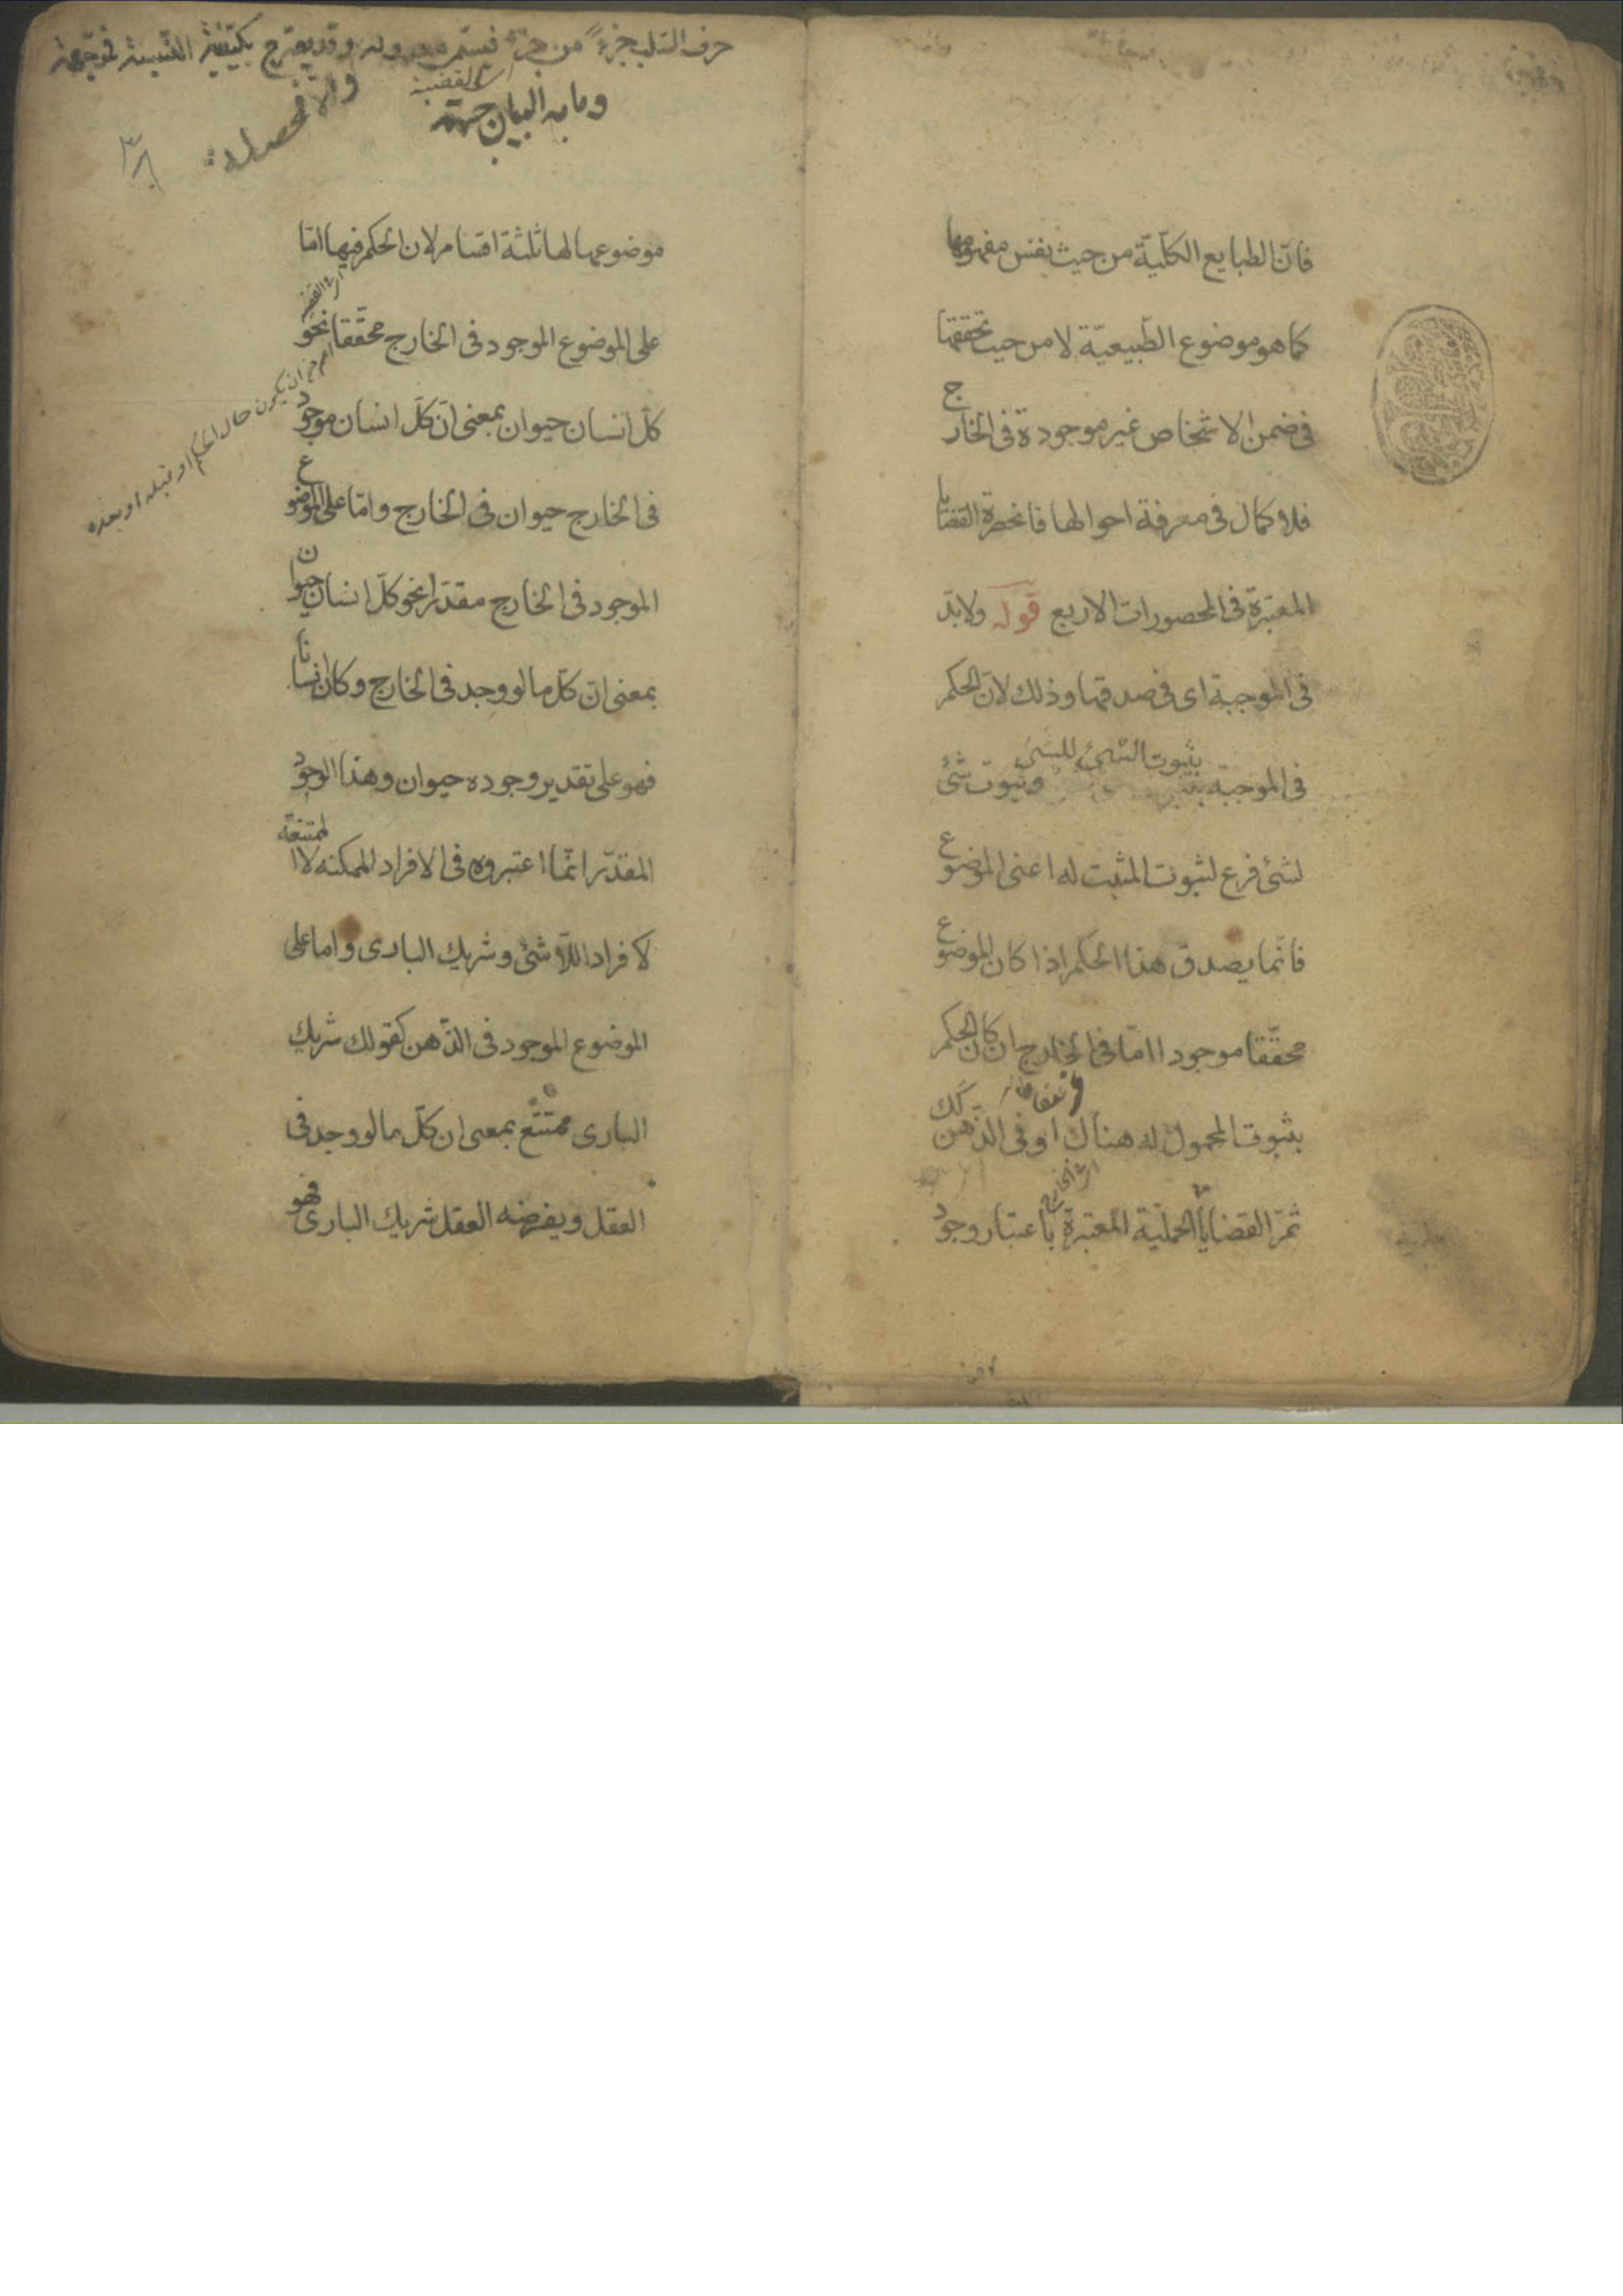 فانّ الطبايع الكلّيّة من حيث نفس مفهومها
كما هو موضوع الطّبيعيّة لا من حيث تحققها
فى ضمن الاشخاص غير موجودة فى الخارج
فلا كمال فى معرفة احوالها فانحصرة القضايا
المعتبرة فى المحصورات الاربع قوله ولابدّ
فى الموجبة اى فى صدقها وذلك لانّ الحكم
فى الموجبة بثبوت الشئ للشئ وثبوت شئ
لشئ فرع لثبوت المثبت له اعنى الموضوع
فانّما يصدق هذا الحكم اذا كان الموضوع
محقّقا موجودا امّا فى الخارج ان كان الحكم
بثبوت المحمول له هناك او فى الذّهن كك
ثمّ القضايا الحمليّة المعتبرة باعتبار وجود
حرف السّلب جزءً من جزء فيسمّى وقد يصرّح بكيفيّة النّسبة فموجّهة
وما به البيان جهة
القضية
والّا فمحصلة
موضوعها لها ثلثة اقسام لان الحكم فيها امّا
على الموضوع الموجود فى الخارج محقّقا نحو
كلّ انسان حيوان بمعنى انّ كلّ انسان موجود
ان يكون حال الحكم او قبله او بعده
فى الخارج حيوان فى الخارج وامّا على الموضوع
الموجود فى الخارج مقدّرا نحو كلّ انسان حيوان
بمعنى انّ كلّ ما لو وجد فى الخارج وكان انسانا
فهو على تقدير وجوده حيوان وهذا الوجود
المقدّر انّما اعتبروه فى الافراد الممكنه لا الممتنعة
كافراد اللّاشئ وشريك البارى واما على
الموضوع الموجود فى الذّهن كقولك شريك
البارى ممتنع بمعنى ان كلّ ما لو وجد فى
العقل ويفرضه العقل شريك البارى فهو